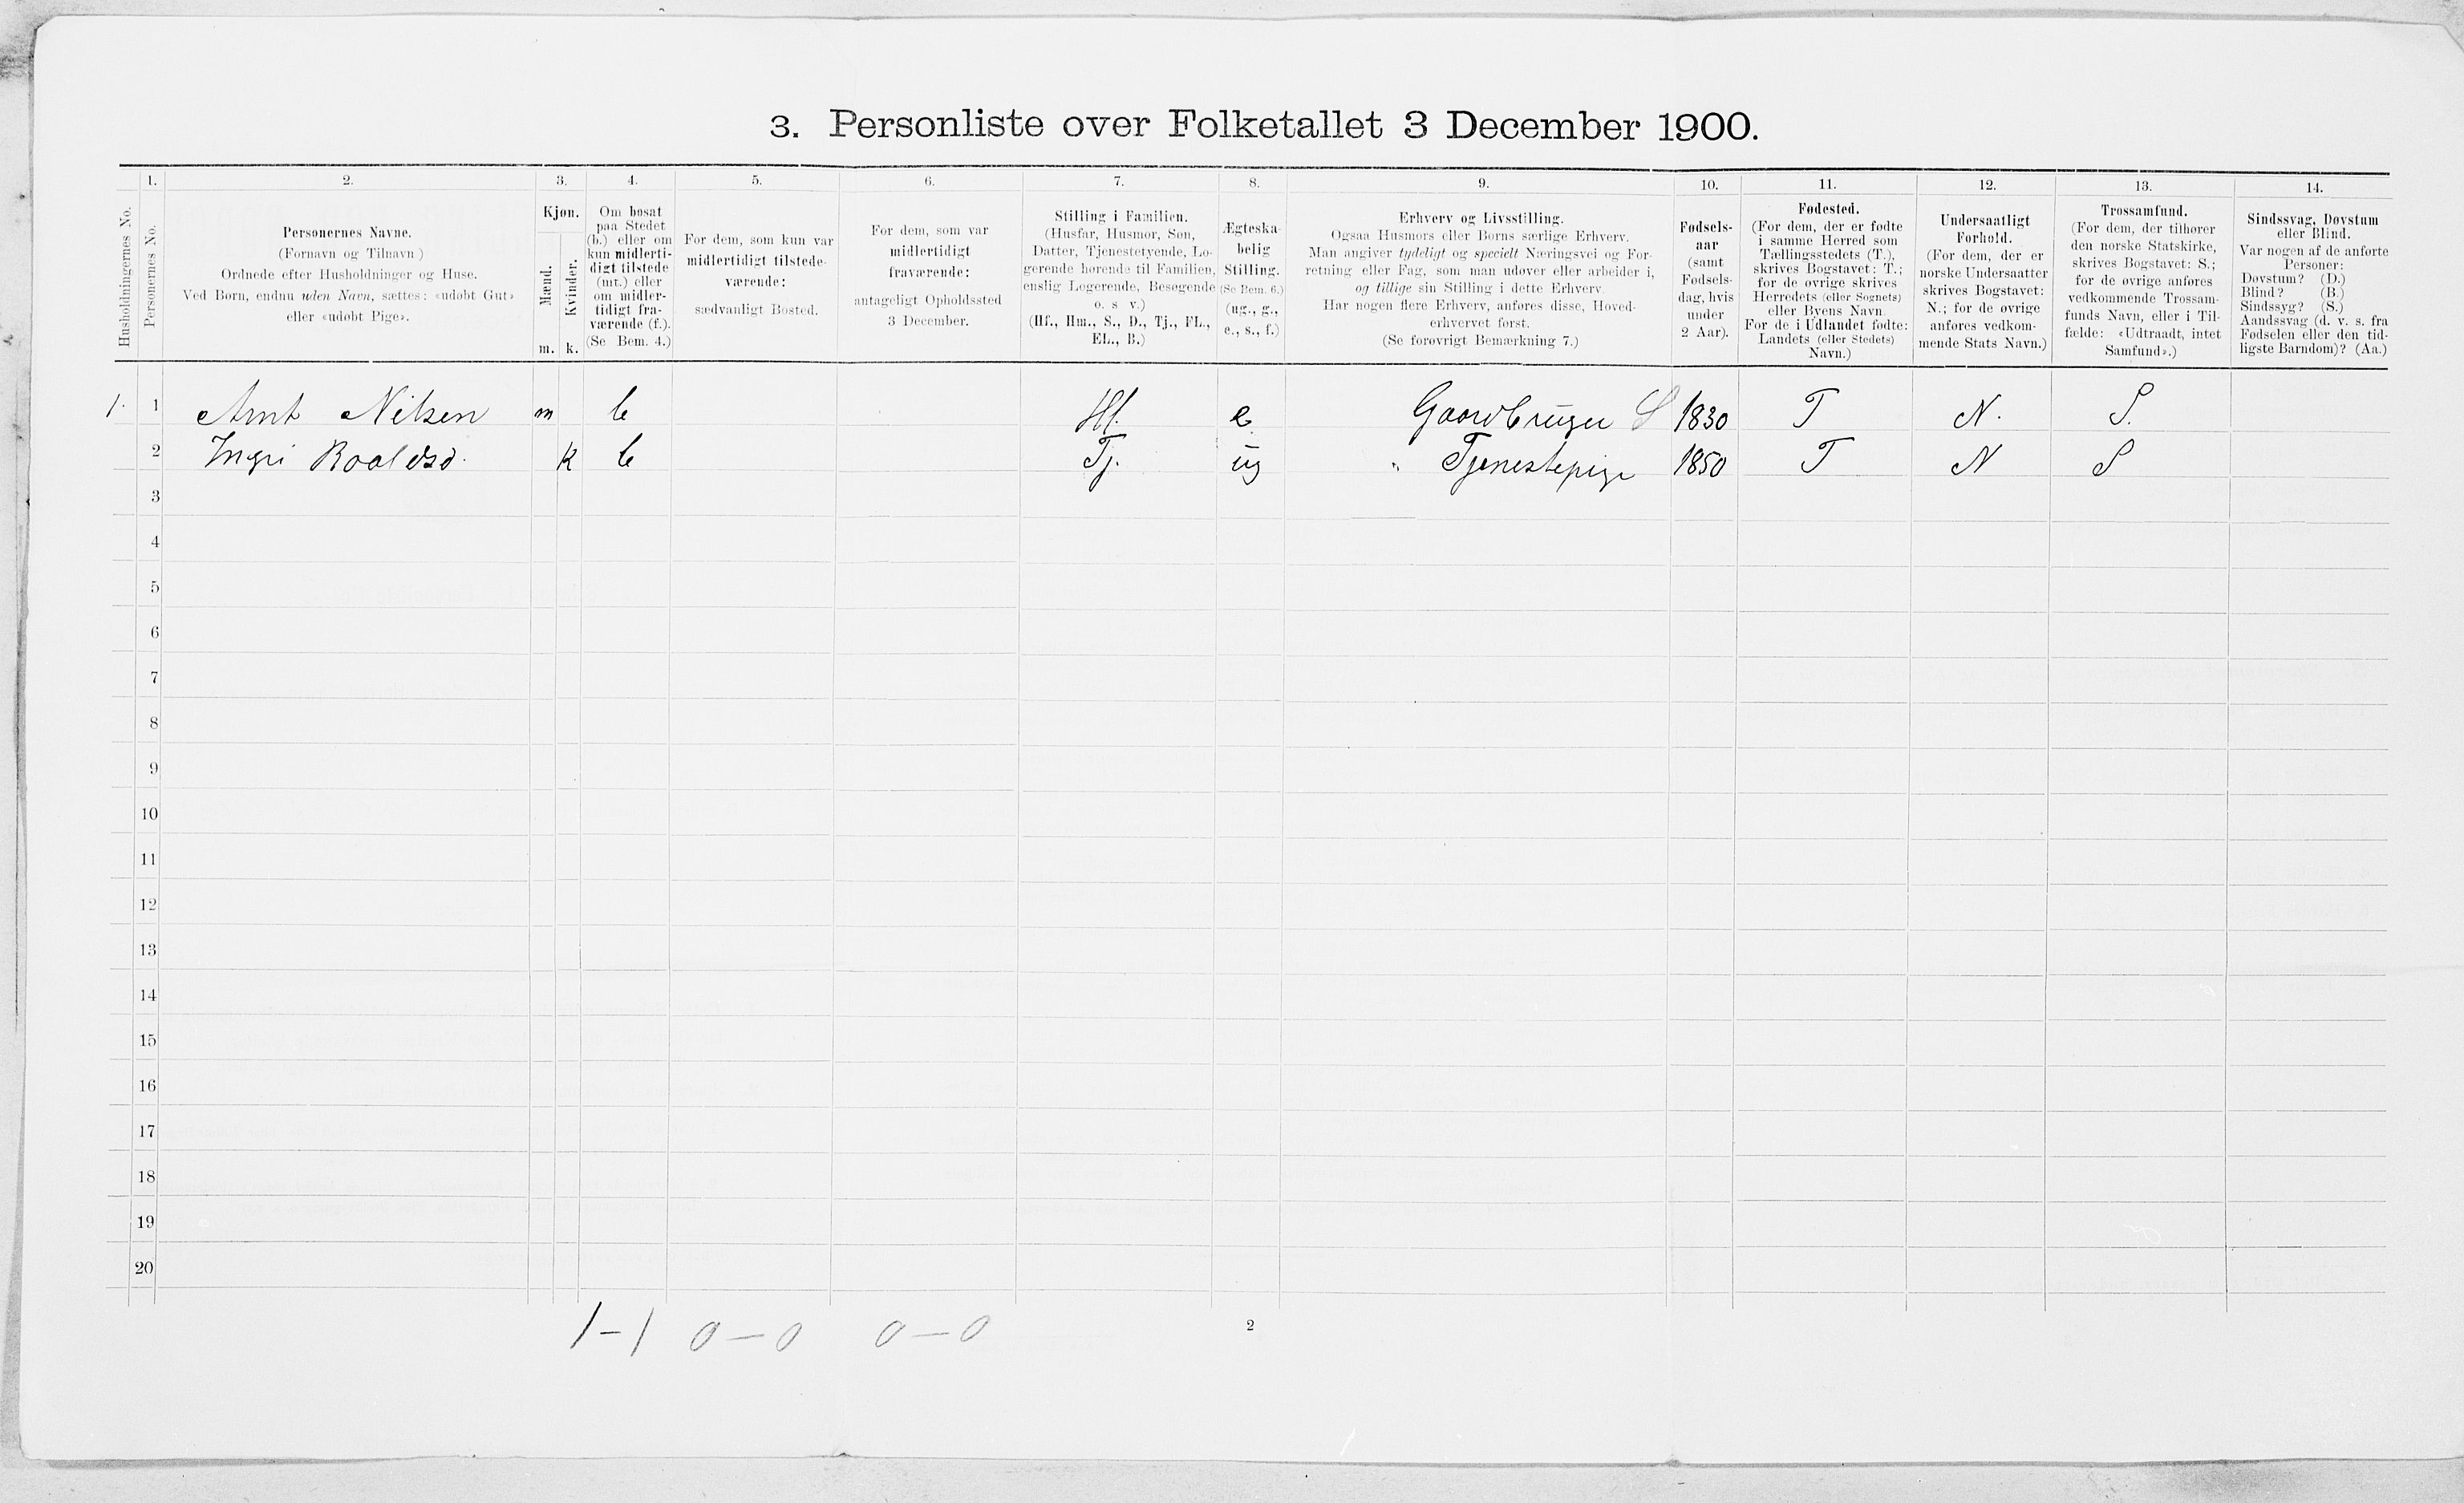 3. Personliste over Folketallet 3 December 1900.
1. 2. 3. 4. 5. 6. 7. 8. 9. 10. 11. 12. 13. 14.
Husholdningernes No.
Personernes No.
Personernes Navne.
(Fornavn og Tilnavn)
Ordnede efter Husholdninger og Huse.
Ved Børn, endnu uden Navn, sættes: «udøbt Gut»
eller «udøbt Pige».
Kjøn.
Mænd.
Kvinder.
m. k.
Om bosat
paa Stedet
(b.) eller om
kun midlerti-
digt tilstede
(mt.) eller
om midler-
tidigt fra-
værende (f.).
(Se Bem. 4.)
For dem, som kun var
midlertidigt tilstede-
værende:
sædvanligt Bosted.
For dem, som var
midlertidigt
fraværende:
antageligt Opholdssted
3 December.
Stilling i Familien.
(Husfar, Husmor, Søn,
Datter, Tjenestetyende, Lo-
gerende hørende til Familien,
enslig Logerende, Besøgende
o. s v.)
(Hf., Hm., S., D., Tj., FL.,
EL., B.)
Ægteska-
belig
Stilling.
(Se Bem. 6.)
(ug., g.,
e., s., f.)
Erhverv og Livsstilling.
Ogsaa Husmors eller Børns særlige Erhverv.
Man angiver tydeligt og specielt Næringsvei og For-
retning eller Fag, som man udøver eller arbeider i,
og tillige sin Stilling i dette Erhverv.
Har nogen flere Erhverv, anføres disse, Hoved-
erhvervet først.
(Se forøvrigt Bemærkning 7.)
Fødsels-
aar
(samt
Fødsels-
dag, hvis
under
2 Aar).
Fødested.
(For dem, der er fødte
i samme Herred som
Tællingsstedets (T.),
skrives Bogstavet: T.;
for de øvrige skrives
Herredets (eller Sognets)
eller Byens Navn.
For de i Udlandet fødte:
Landets (eller Stedets)
Navn.)
Undersaatligt
Forhold.
(For dem, der er
norske Undersaatter
skrives Bogstavet:
N.; for de øvrige
anføres vedkom-
mende Stats Navn.)
Trossamfund.
(For dem, der tilhører
den norske Statskirke,
skrives Bogstavet: S.;
for de øvrige anføres
vedkommende Trossam-
funds Navn, eller i Til-
fælde: «Udtraadt, intet
Samfund».)
Sindssvag, Døvstum
eller Blind.
Var nogen af de anførte
Personer:
Døvstum? (D.)
Blind? (B.)
Sindssyg? (S.)
Aandssvag (d. v. s. fra
Fødselen eller den tid-
ligste Barndom)? (Aa.)
1. 1 Arnt Nilsen m b Hf. e Gaardbruger S 1830 T N. S.
2 Ingri Roaldsd. k b Tj. ug " Tjenestepige 1850 T N S
3
4
5
6
7
8
9
10
11
12
13
14
15
16
17
18
19
20
1-1 0-0 0-0
2